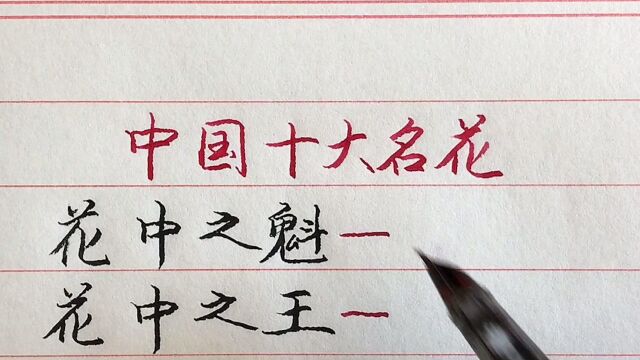 中国十大名花
花中之魁—
花中之王—